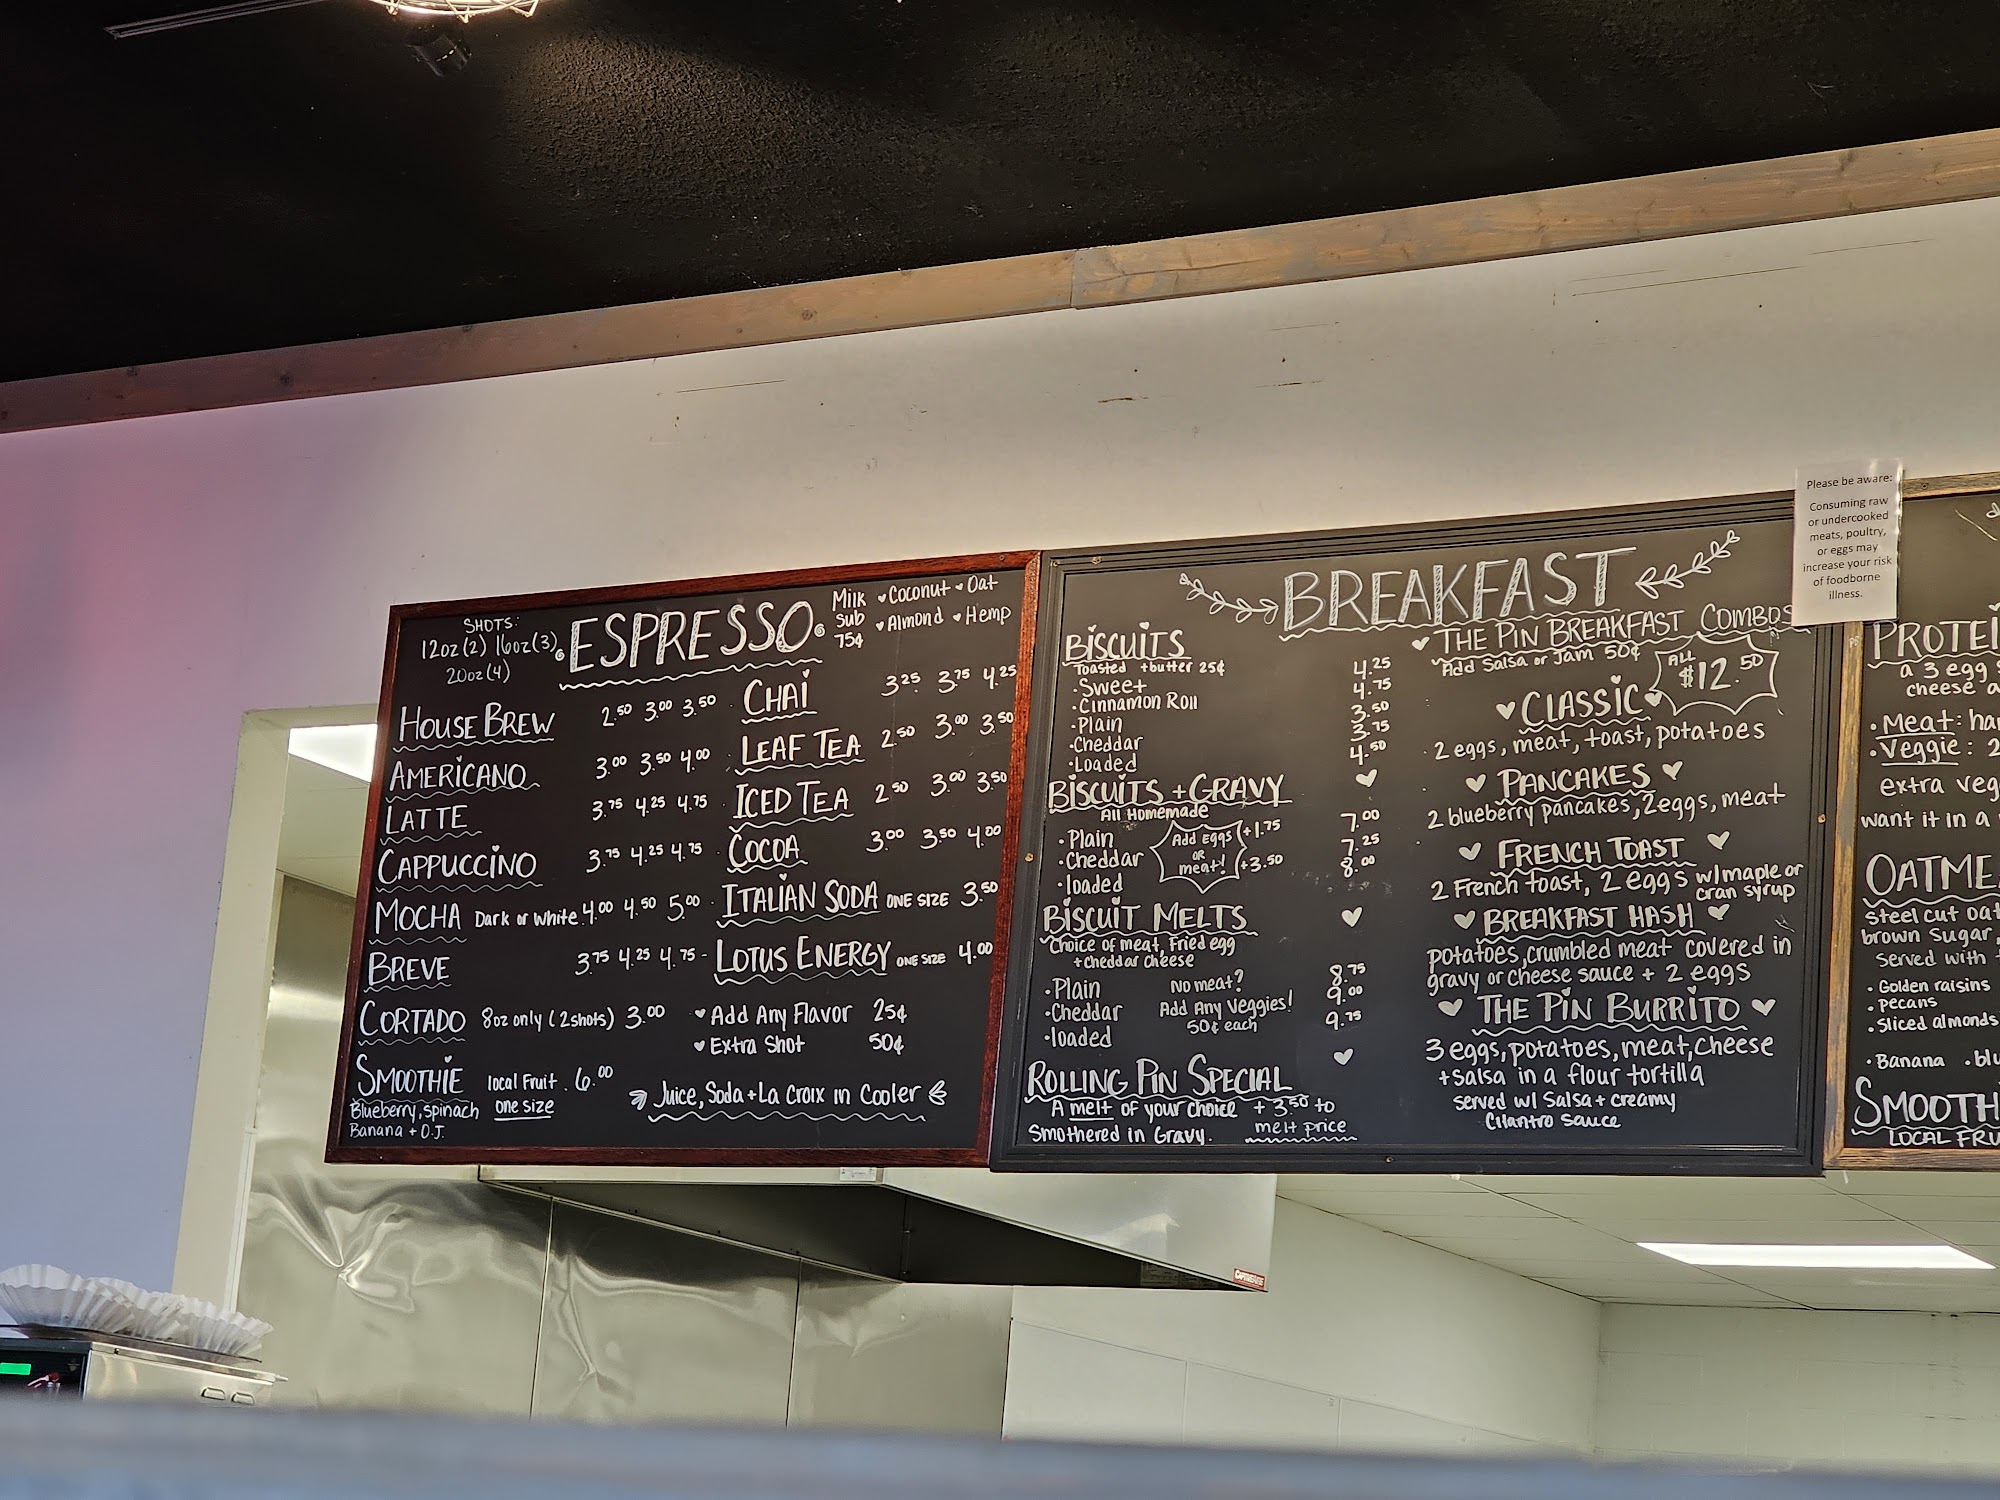 SHOTS:
12oz (2) 16oz (3)
20oz (4)
ESPRESSO
Milk ♥ Coconut ♥ Oat
Sub ♥ Almond ♥ Hemp
75¢
HOUSE BREW 2.50 3.00 3.50
AMERICANO 3.00 3.50 4.00
LATTE 3.75 4.25 4.75
CAPPUCCINO 3.75 4.25 4.75
MOCHA Dark or White 4.00 4.50 5.00
BREVE 3.75 4.25 4.75
CORTADO 8oz only (2 shots) 3.00
SMOOTHIE local Fruit. 6.00
Blueberry, spinach one size
Banana + O.J.
CHAI 3.25 3.75 4.25
LEAF TEA 2.50 3.00 3.50
ICED TEA 2.50 3.00 3.50
COCOA 3.00 3.50 4.00
ITALIAN SODA ONE SIZE 3.50
LOTUS ENERGY ONE SIZE 4.00
♥ Add Any Flavor 25¢
♥ Extra Shot 50¢
Juice, Soda + La Croix in Cooler
BREAKFAST
BISCUITS
Toasted + butter 25¢
• Sweet 4.25
• Cinnamon Roll 4.75
• Plain 3.50
• Cheddar 3.75
• Loaded 4.50
BISCUITS + GRAVY ♥
All Homemade
• Plain 7.00
• Cheddar 7.25
• loaded 8.00
Add Eggs +1.75
OR
meat! +3.50
BISCUIT MELTS ♥
Choice of meat, Fried egg
+ Cheddar Cheese
• Plain 8.75
• Cheddar 9.00
• loaded 9.75
No meat?
Add Any Veggies!
50¢ each
ROLLING PIN SPECIAL ♥
A melt of your choice + 3.50 to
Smothered in Gravy. melt price
♥ THE PIN BREAKFAST COMBOS
Add Salsa or Jam 50¢
ALL
$12.50
♥ CLASSIC ♥
2 eggs, meat, toast, potatoes
♥ PANCAKES ♥
2 blueberry pancakes, 2 eggs, meat
♥ FRENCH TOAST ♥
2 French toast, 2 eggs w/ maple or
cran syrup
♥ BREAKFAST HASH ♥
potatoes, crumbled meat covered in
gravy or cheese sauce + 2 eggs
♥ THE PIN BURRITO ♥
3 eggs, potatoes, meat, cheese
+ salsa in a flour tortilla
served w/ Salsa + creamy
Cilantro sauce
Please be aware:
Consuming raw
or undercooked
meats, poultry,
or eggs may
increase your risk
of foodborne
illness.
PROTEI
a 3 egg
cheese a
• Meat: ha
• Veggie: 2
extra veg
want it in a
OATME
Steel cut oat
brown sugar,
Served with
• Golden raisins
• pecans
• Sliced almonds
• Banana • blu
SMOOTH
LOCAL FRU